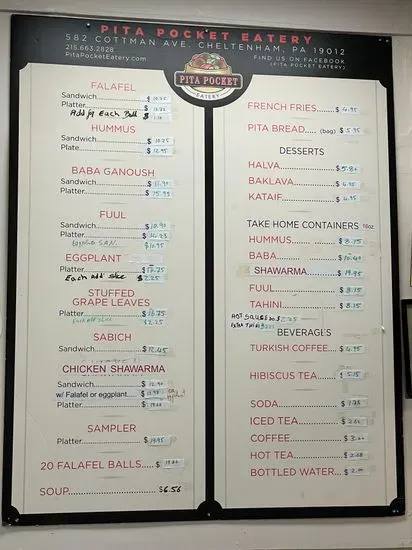 PITA POCKET EATERY
582 COTTMAN AVE. CHELTENHAM, PA 19012
215.663.2828
PitaPocketEatery.com
FIND US ON FACEBOOK
(PITA POCKET EATERY)
PITA POCKET
EATERY
FALAFEL
Sandwich $10.75
Platter $
Add for Each Ball $
HUMMUS
Sandwich $10.75
Plate $12.95
BABA GANOUSH
Sandwich $11.90
Platter $15.95
FUUL
Sandwich $10.90
Platter $14.23
SAN. $10.95
EGGPLANT
Platter $17.75
Each add slice $2.25
STUFFED
GRAPE LEAVES
Platter $16.75
Each add slice $2.25
SABICH
Sandwich $12.45
CHICKEN SHAWARMA
Sandwich $12.90
w/ Falafel or eggplant $13.98
Platter $
SAMPLER
Platter $19.95
20 FALAFEL BALLS $
SOUP $6.56
FRENCH FRIES $4.95
PITA BREAD (bag) $5.95
DESSERTS
HALVA $5.80
BAKLAVA $4.95
KATAIF $4.95
TAKE HOME CONTAINERS 16oz
HUMMUS $8.15
BABA $10.40
SHAWARMA $19.95
FUUL $8.15
TAHINI $8.15
HOT SAUCE $2.25
EXTRA
BEVERAGES
TURKISH COFFEE $4.95
HIBISCUS TEA $5.15
SODA $1.75
ICED TEA $2.61
COFFEE $3.00
HOT TEA $2.68
BOTTLED WATER $2.00